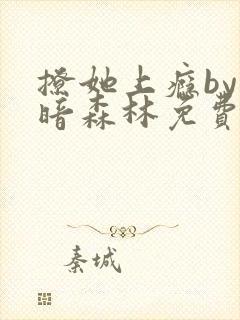 撩她上癮by
暗森林免費
秦城